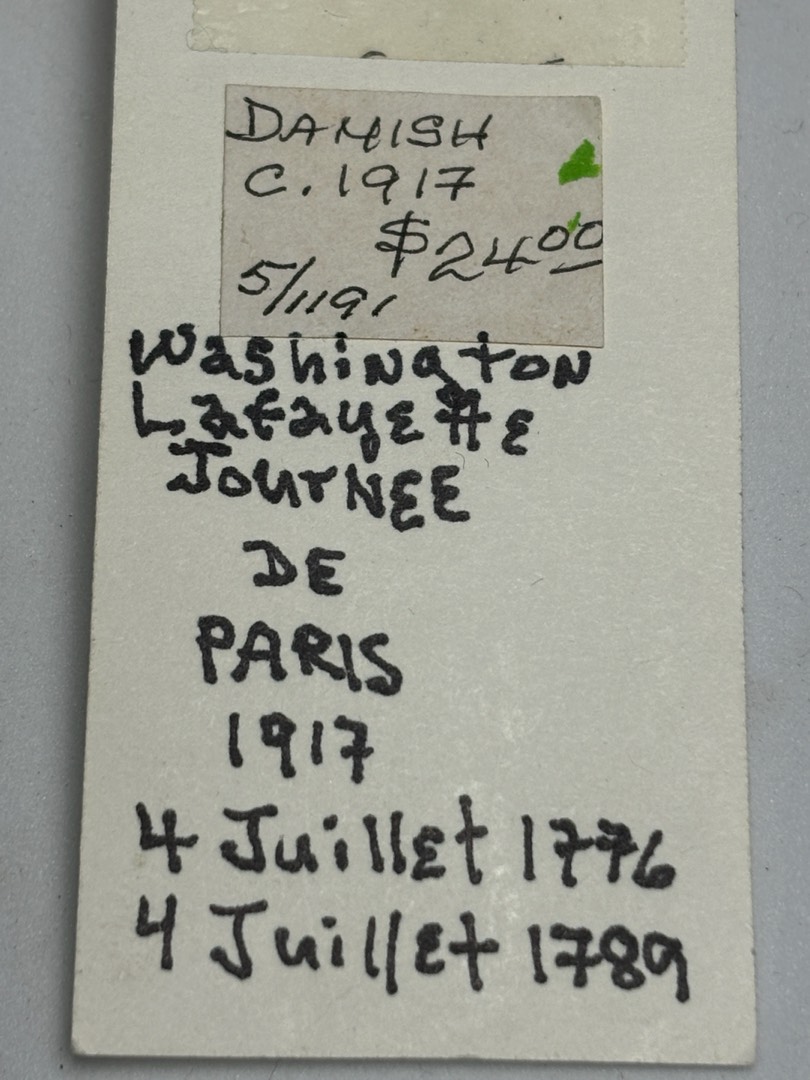 DANISH
C. 1917
$24.00
5/1191
Washington
Lafayette
JOURNEE
DE
PARIS
1917
4 Juillet 1776
4 Juillet 1789